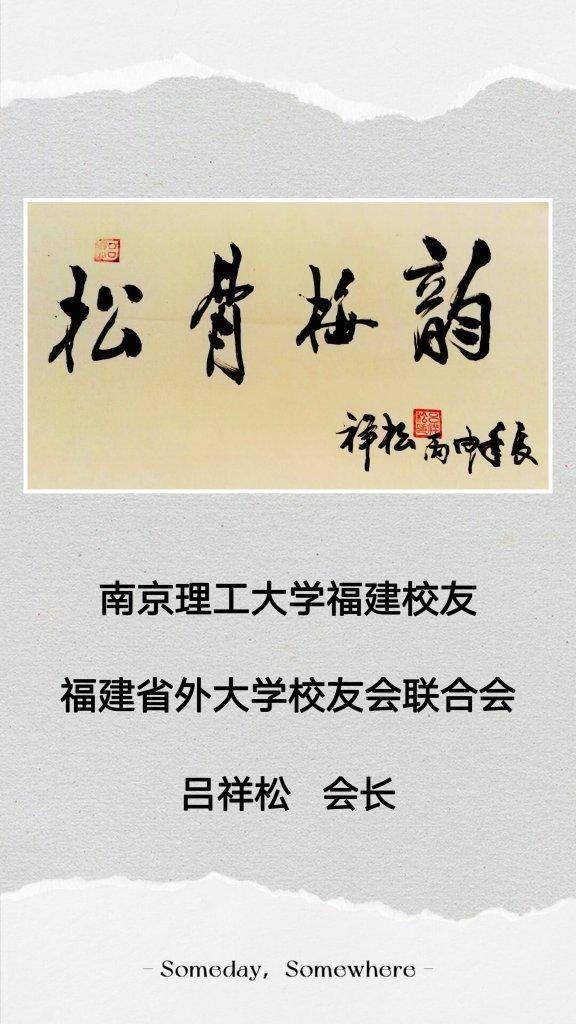 松骨梅韵
祥松 丙申年辰
南京理工大学福建校友
福建省外大学校友会联合会
吕祥松 会长
- Someday, Somewhere -